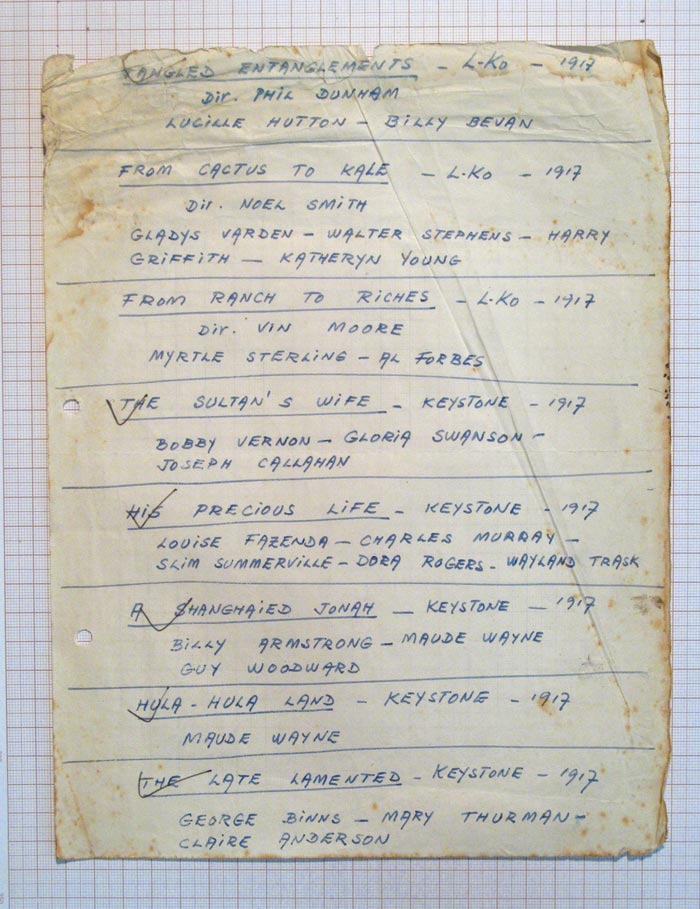 TANGLED ENTANGLEMENTS - L-KO - 1917
Dir. PHIL DUNHAM
LUCILLE HUTTON - BILLY BEVAN
FROM CACTUS TO KALE - L-KO - 1917
Dir. NOEL SMITH
GLADYS VARDEN - WALTER STEPHENS - HARRY
GRIFFITH - KATHERYN YOUNG
FROM RANCH TO RICHES - L-KO - 1917
Dir. VIN MOORE
MYRTLE STERLING - AL FORBES
THE SULTAN'S WIFE - KEYSTONE - 1917
BOBBY VERNON - GLORIA SWANSON -
JOSEPH CALLAHAN
HIS PRECIOUS LIFE - KEYSTONE - 1917
LOUISE FAZENDA - CHARLES MURRAY -
SLIM SUMMERVILLE - DORA ROGERS - WAYLAND TRASK
A SHANGHAIED JONAH - KEYSTONE - 1917
BILLY ARMSTRONG - MAUDE WAYNE
GUY WOODWARD
HULA - HULA LAND - KEYSTONE - 1917
MAUDE WAYNE
THE LATE LAMENTED - KEYSTONE - 1917
GEORGE BINNS - MARY THURMAN -
CLAIRE ANDERSON